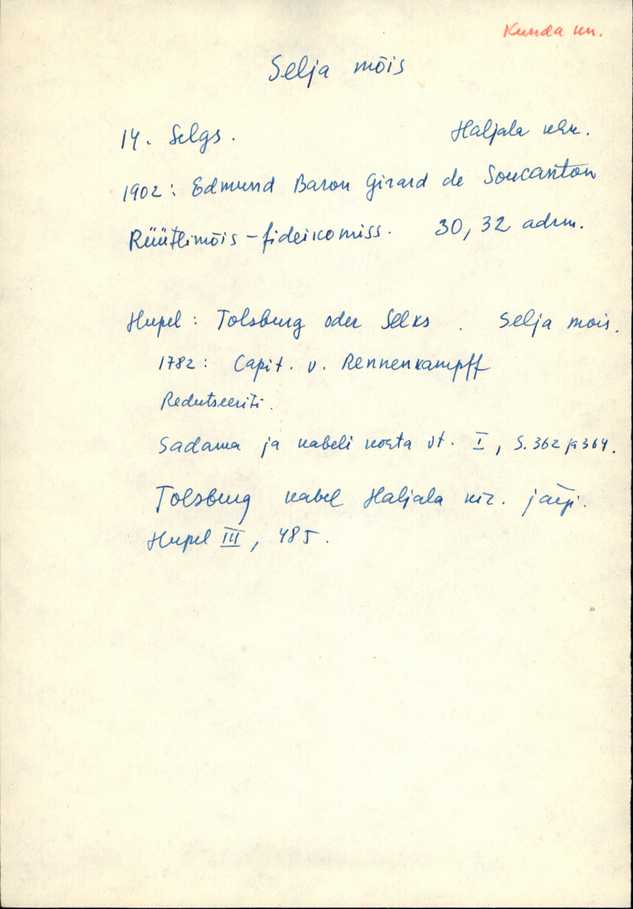 Kunda kn.
Selja mõis
14. Selgs. Haljala khk.
1902: Edmund Baron Girard de Soucanton
Rüütlimõis - fideikomiss. 30,32 adrm.
Hupel: Tolsburg oder Selks. Selja mois.
1782: Capit. v. Rennenkampff
Redutseeriti.
Sadama ja kabeli kohta vt. I, S. 362 ja 364.
Tolsburg kabel Haljala kir. järgi.
Hupel III, 485.